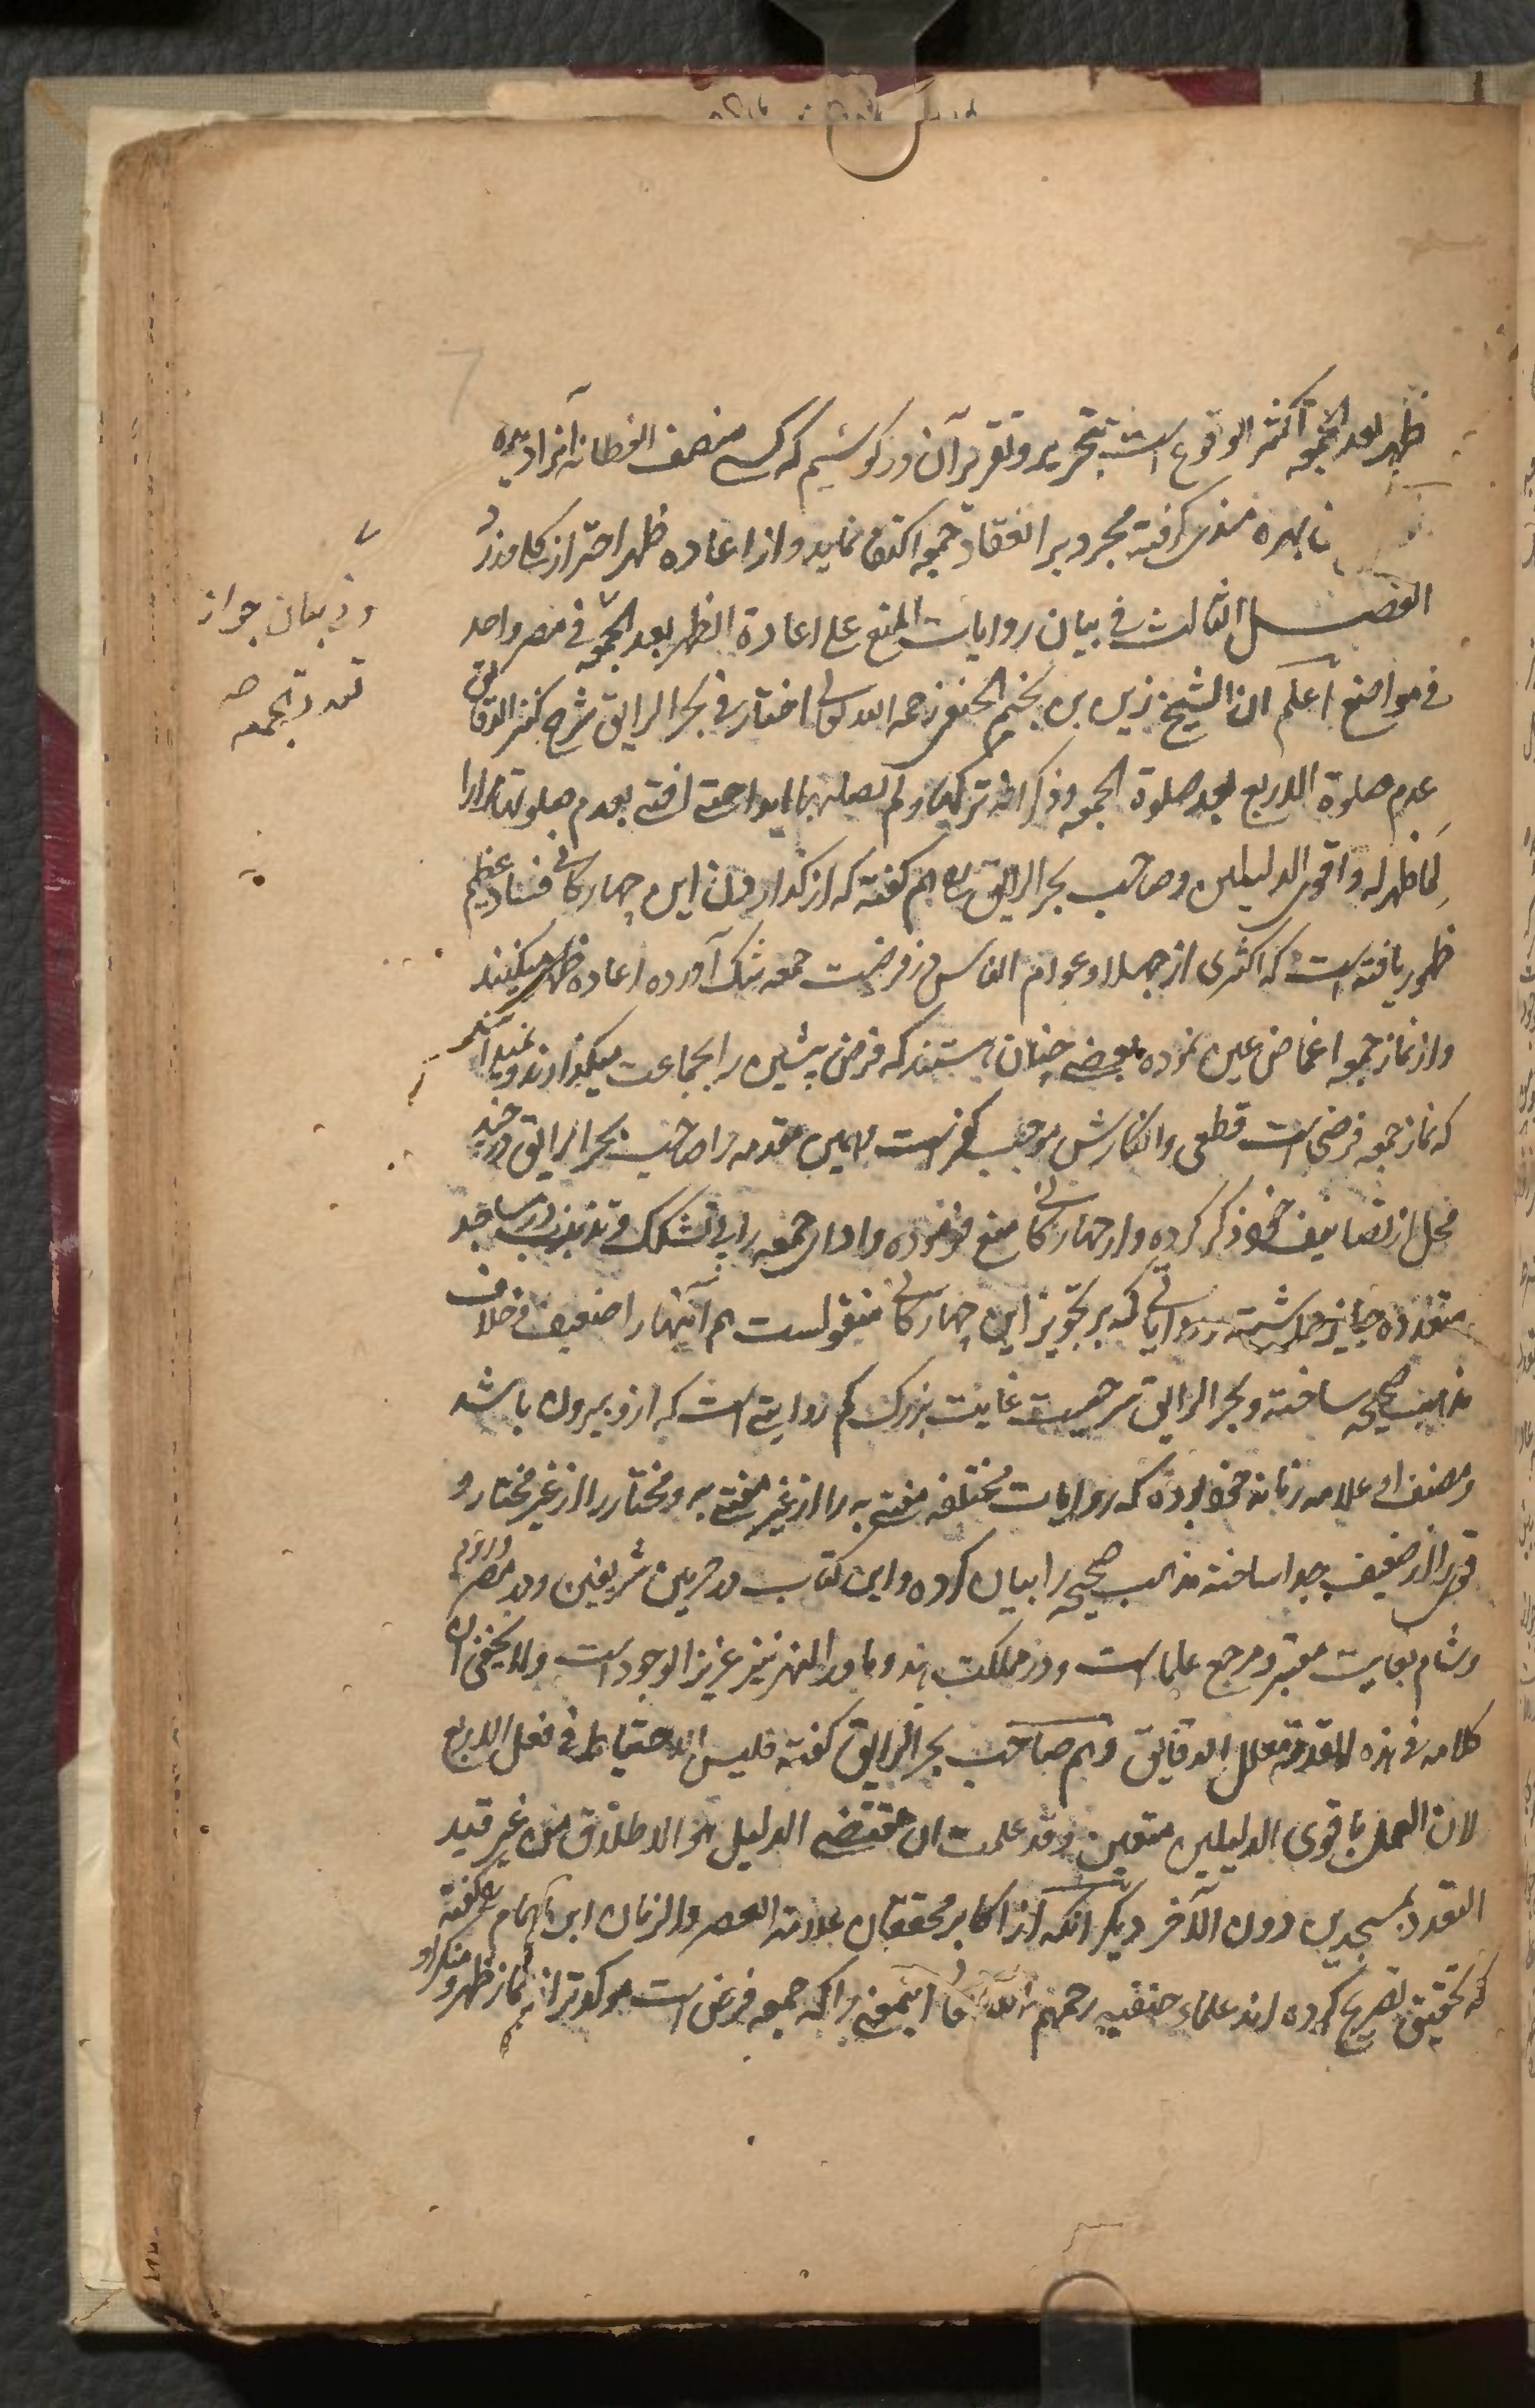 ظهر بعد الجمعه اكثر الوقوع است بتحرير و تقرير آن در كوشيم كه كسى منصف الفطانه آنرا ديده
بهره كرفته مجرد بر انعقاد جمعه اكتفا نمايد و از اعاده ظهر احتراز كلى ورزد
الفصل الثالث فى بيان روايات المنع على اعادة الظهر بعد الجمعة فى مصر واحد
و فى بيان جواز
تعدد الجمعه صح
فى مواضع اعلم ان الشيخ زين بن نجيم الحنفى رحمه الله تعالى اختار فى بحر الرايق شرح كنز الدقايق
عدم صلوة الاربع بعد صلوة الجمعه و ذكر انه تركها و لم يصليها ابدا حتى افتى بعدم صلوتها مرارا
لما ظهر له و اقوى الدليلين و صاحب بحر الرايق هم كفته كه از كذاردن اين چهاركانى فساد عظيم
ظهور يافته است كه اكثرى از جهلا و عوام الناس در فرضيت جمعه شك آورده اعاده ظهر ميكنند
و از نماز جمعه اغماض عين نموده بعضى چنان هستند كه فرض پيشين را بجماعت ميكذارند و نميدانند
كه نماز جمعه فرضى است قطعى و انكارش موجب كفر است همين مقدمه را صاحب بحر الرايق در چند
محل از تصانيف خود ذكر كرده و از چهاركانى منع فرموده و اداى جمعه را بى تشكك و تذبذب در مساجد
متعدده جايز داشته رواياتى كه بر تجويز اين چهاركانى منقولست هم آنها را ضعيف و خلاف
مذهب صحيح ساخته و بحر الرايق شرحيست غايت بزرك كم روايتى است كه ازو بيرون باشد
و مصنف او علامه زمانه خود بوده كه روايات مختلفه مفتى به را از غير مفتى به و مختار را از غير مختار و
قوى را از ضعيف جدا ساخته مذهب صحيح را بيان كرده و اين كتاب در حرمين شريفين و در مصر و روم
و شام بغايت معتبر و مرجع علما است و در مملكت هند و ماوراالنهر نيز عزيز الوجود است و لا يخفى ان
كلامه فى هذه المقدمة الدقايق و هم صاحب بحر الرايق كفته فليس الاحتياط فى فعل الاربع
لان العمل باقوى الدليلين متعين و قد علمت ان مقتضى الدليل هو الاطلاق من غير قيد
التعدد بمسجدين دون الآخر ديكر آنكه از اكابر محققان علامة العصر و الزمان ابن همام كفته
كه تحقيق تصريح كرده اند علماء حنفيه رحمهم الله اينمعنى را كه جمعه فرض است موكدتر از نماز ظهر و منكر او